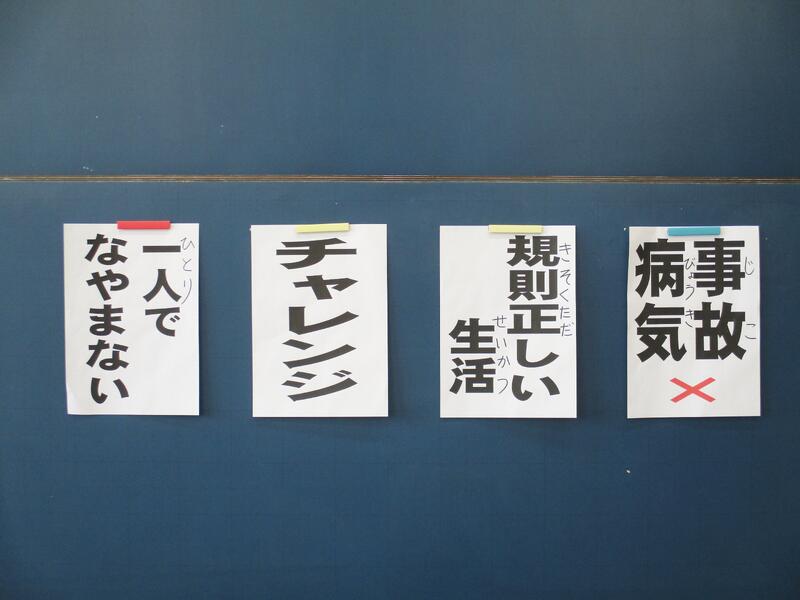 事故
じこ
病気
びょうき
×
規則正しい
きそくただ
生活
せいかつ
チャレンジ
一人で
ひとり
なやまない